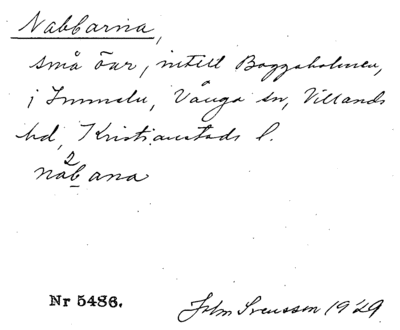 Nabbarna,
små öar, intill Baggaholmen,
i Immeln, Vånga sn, Villands
hd, Kristianstads l.
nabana
Nr 5486.
John Svensson 1929